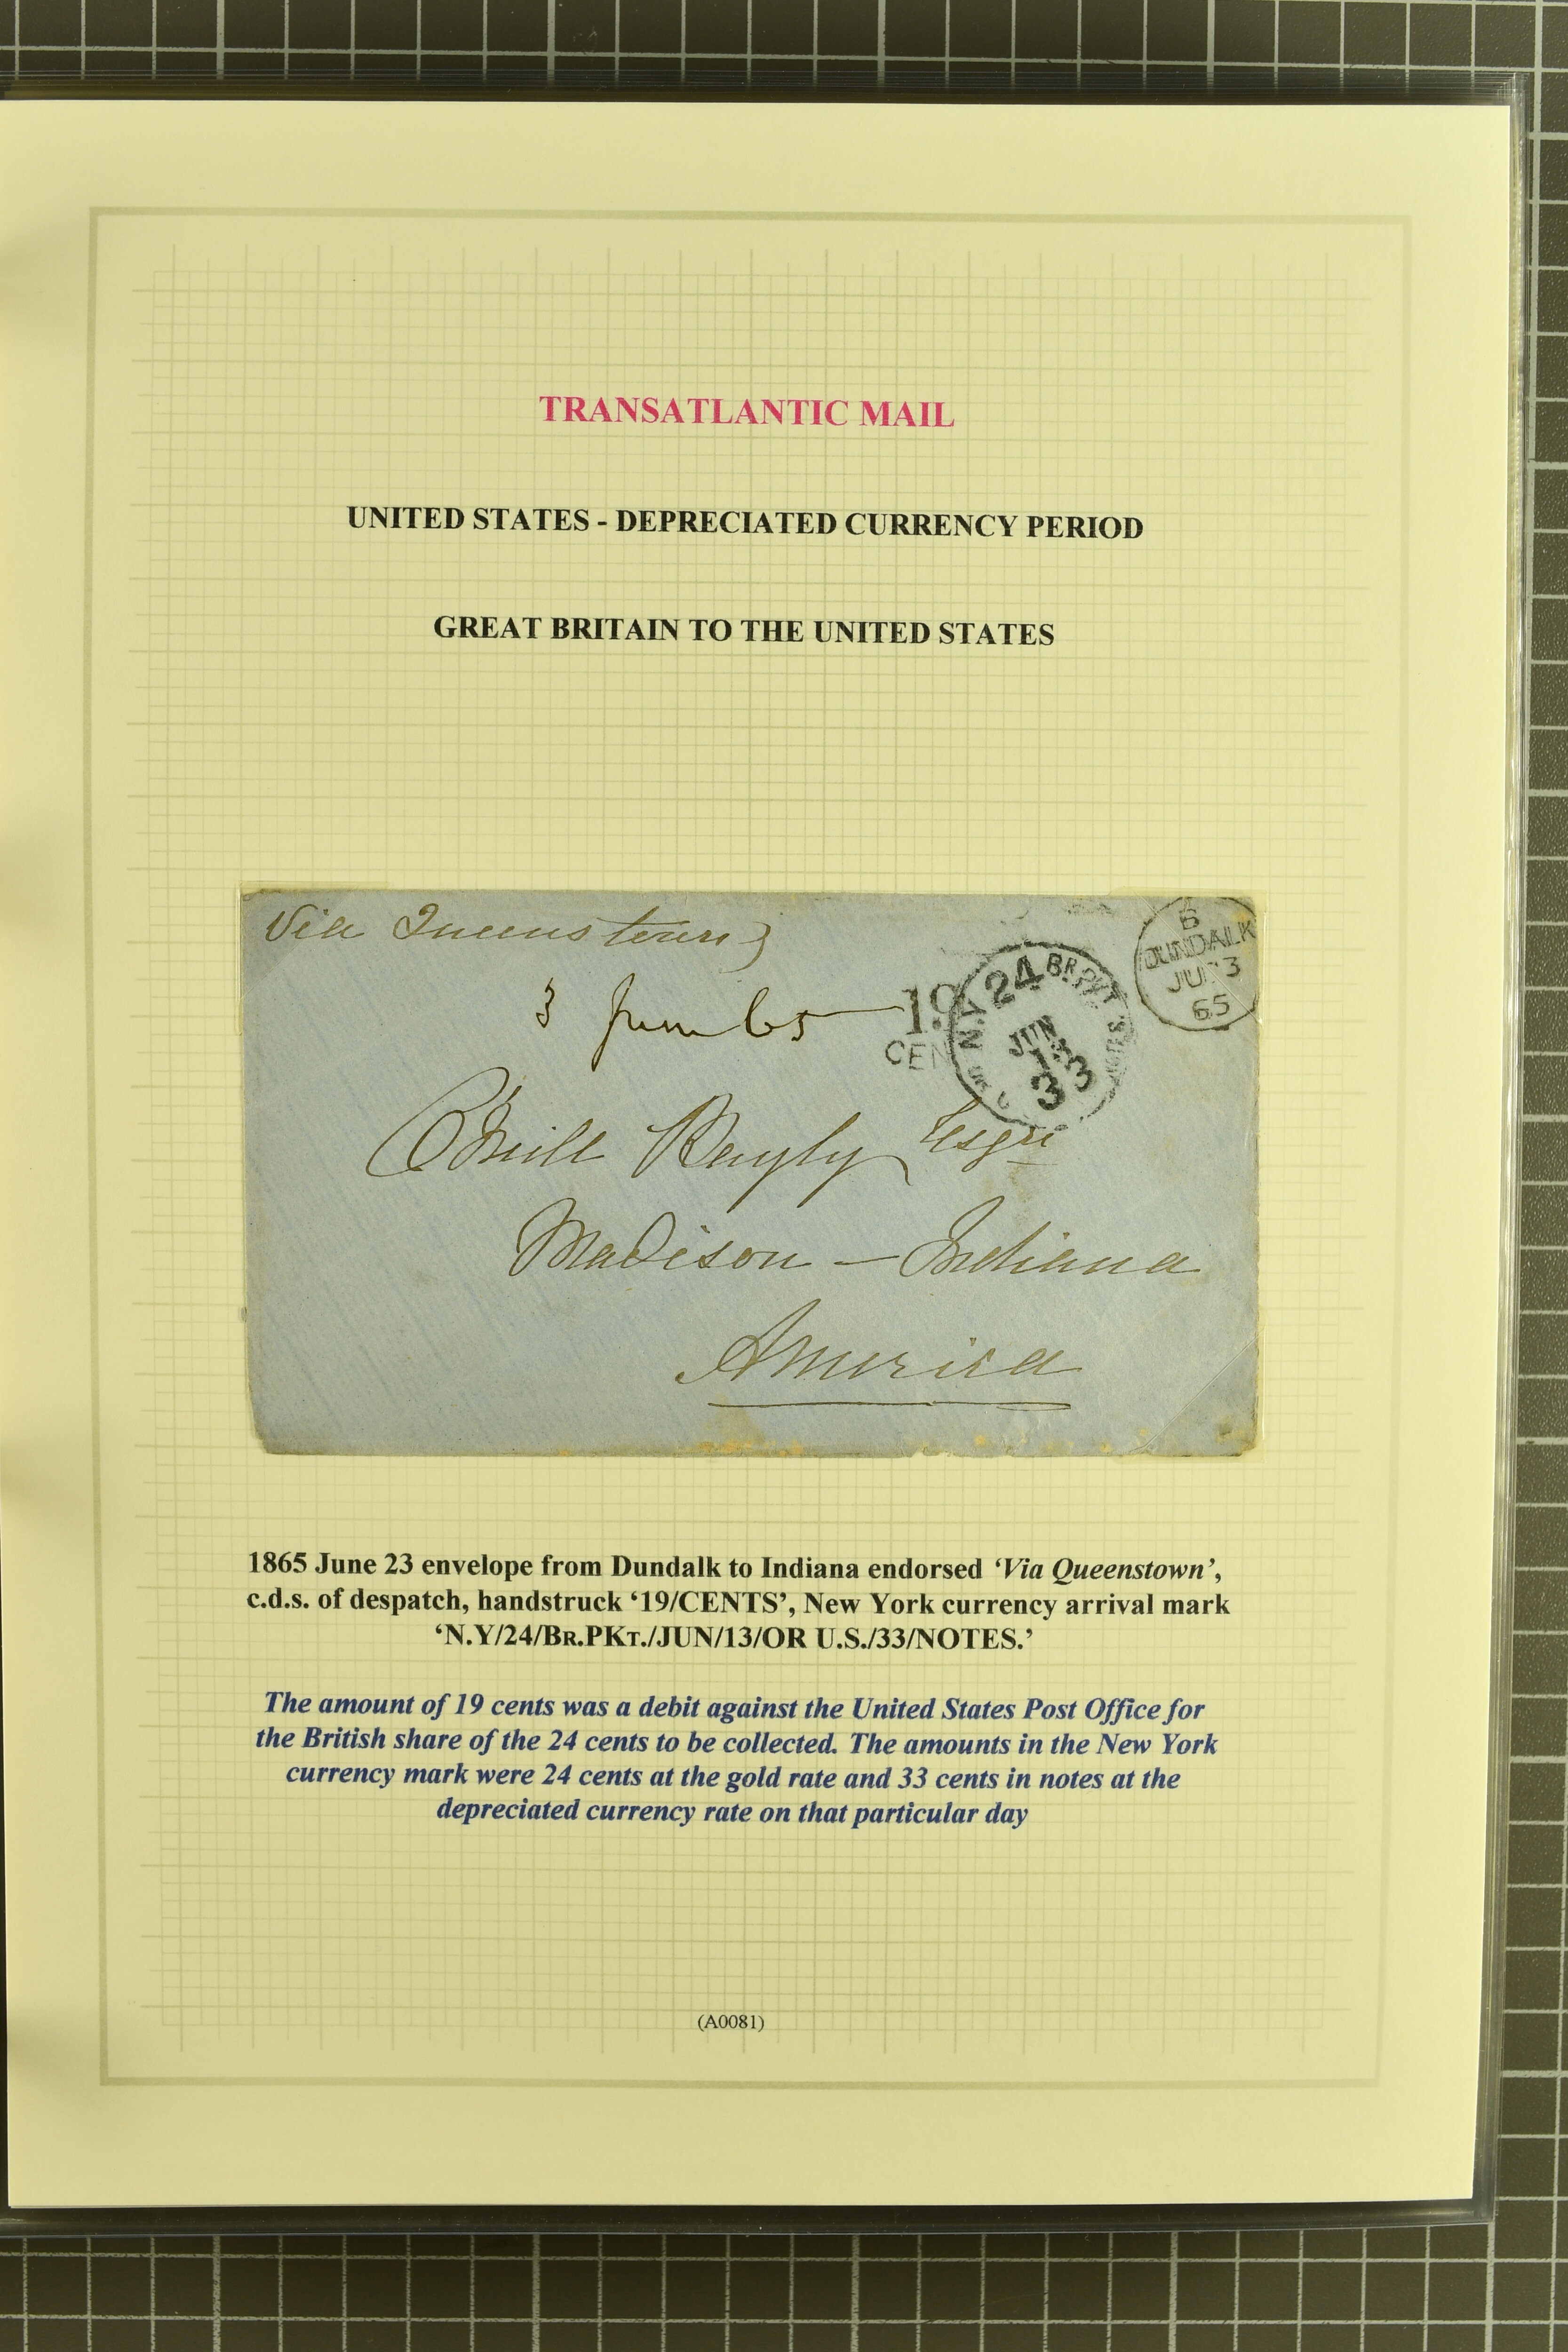 TRANSATLANTIC MAIL
UNITED STATES - DEPRECIATED CURRENCY PERIOD
GREAT BRITAIN TO THE UNITED STATES
Via Queenstown
B
DUNDALK
JU 3
65
3 June 65
19
CEN
N.Y. 24 BR. PKT.
JUN
13
33
U.S.
O'Neill Bayly Esqre
Madison – Indiana
America
1865 June 23 envelope from Dundalk to Indiana endorsed ‘Via Queenstown’,
c.d.s. of despatch, handstruck ‘19/CENTS’, New York currency arrival mark
‘N.Y/24/BR.PKT./JUN/13/OR U.S./33/NOTES.’
The amount of 19 cents was a debit against the United States Post Office for
the British share of the 24 cents to be collected. The amounts in the New York
currency mark were 24 cents at the gold rate and 33 cents in notes at the
depreciated currency rate on that particular day
(A0081)